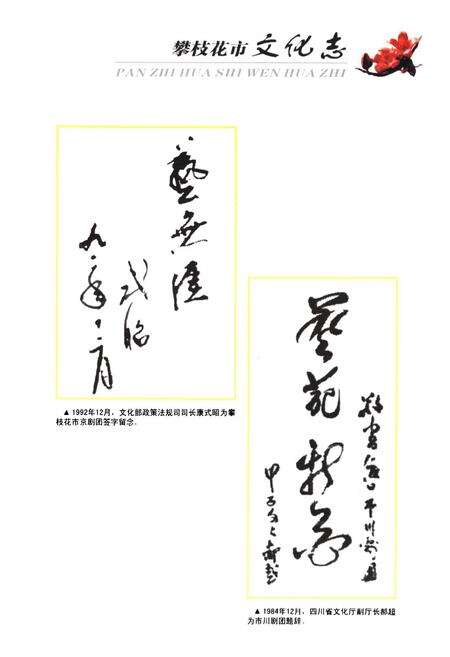 攀枝花市文化志
PAN ZHI HUA SHI WEN HUA ZHI
藝無涯
式昭
九二年十二月
▲ 1992年12月，文化部政策法规司司长康式昭为攀
枝花市京剧团签字留念．
藝苑新
▲ 1984年12月，四川省文化厅副厅长郝超
为市川剧团题辞．